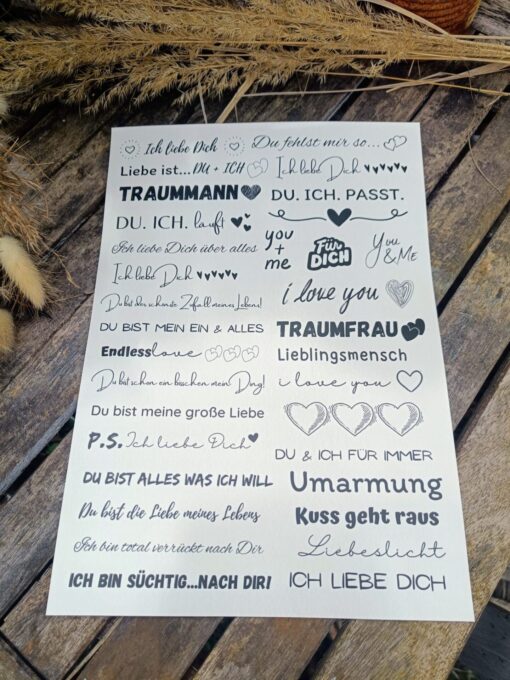 Ich liebe Dich
Du fehlst mir so...
Liebe ist...DU + ICH
Ich liebe Dich
TRAUMMANN
DU. ICH. PASST.
DU. ICH. läuft
you
+
me
Für
DICH
You
&Me
Ich liebe Dich über alles
Ich liebe Dich
i love you
Du bist der schönste Zufall meines Lebens!
DU BIST MEIN EIN & ALLES
TRAUMFRAU
Endless love
Lieblingsmensch
Du bist schon ein bisschen mein Ding!
i love you
Du bist meine große Liebe
P.S. Ich liebe Dich
DU & ICH FÜR IMMER
DU BIST ALLES WAS ICH WILL
Umarmung
Du bist die Liebe meines Lebens
Kuss geht raus
Ich bin total verrückt nach Dir
Liebeslicht
ICH BIN SÜCHTIG...NACH DIR!
ICH LIEBE DICH